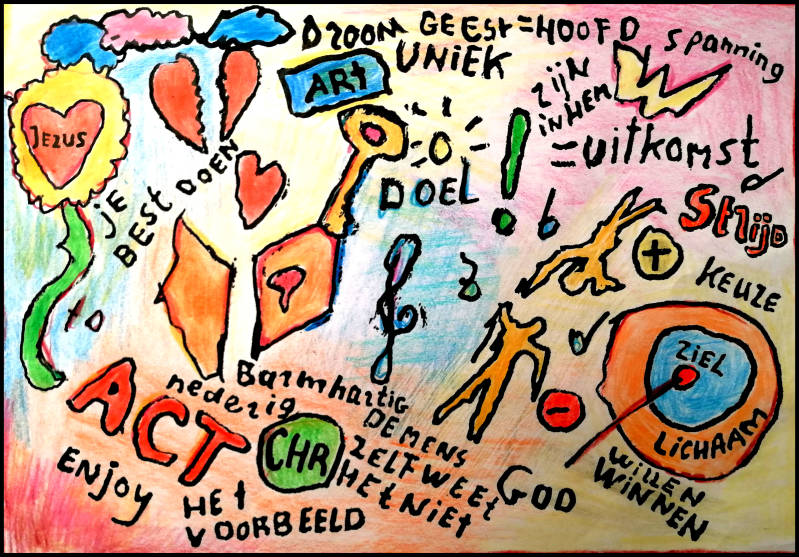 DROOM
GEEST=HOOFD
UNIEK
spanning
ART
ZIJN
IN HEM
=uitkomst
JEZUS
JE
BEST DOEN
DOEL
!
of
Strijd
+
KEUZE
to
ZIEL
LICHAAM
ACT
nederig
Barmhartig
DE MENS
ZELF WEET
HET NIET
CHR
-
GOD
WILLEN
WINNEN
ENJOY
HET
VOORBEELD